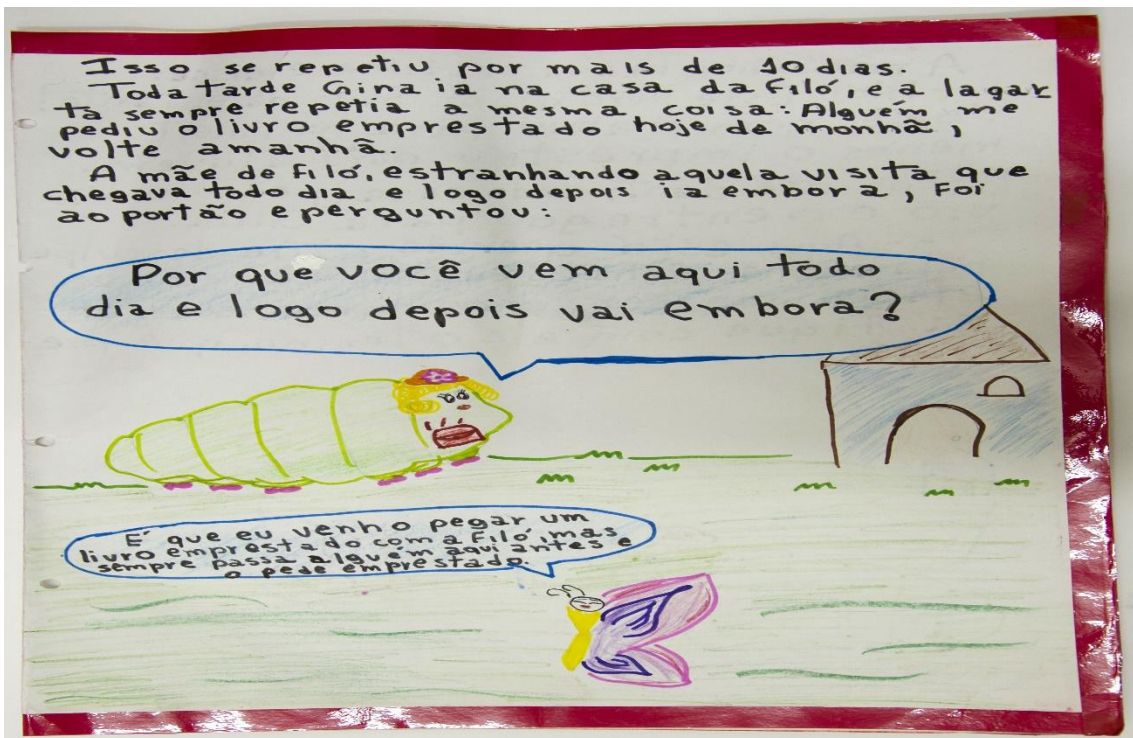 Isso se repetiu por mais de 10 dias.
Toda tarde Gina ia na casa da Filó, e a lagar
ta sempre repetia a mesma coisa: Alguém me
pediu o livro emprestado hoje de monhã,
volte amanhã.
A mãe de Filó, estranhando aquela visita que
chegava todo dia e logo depois ia embora, foi
ao portão e perguntou:
Por que você vem aqui todo
dia e logo depois vai embora?
É que eu venho pegar um
livro emprestado com a Filó, mas
sempre passa alguém aqui antes e
o pede emprestado.